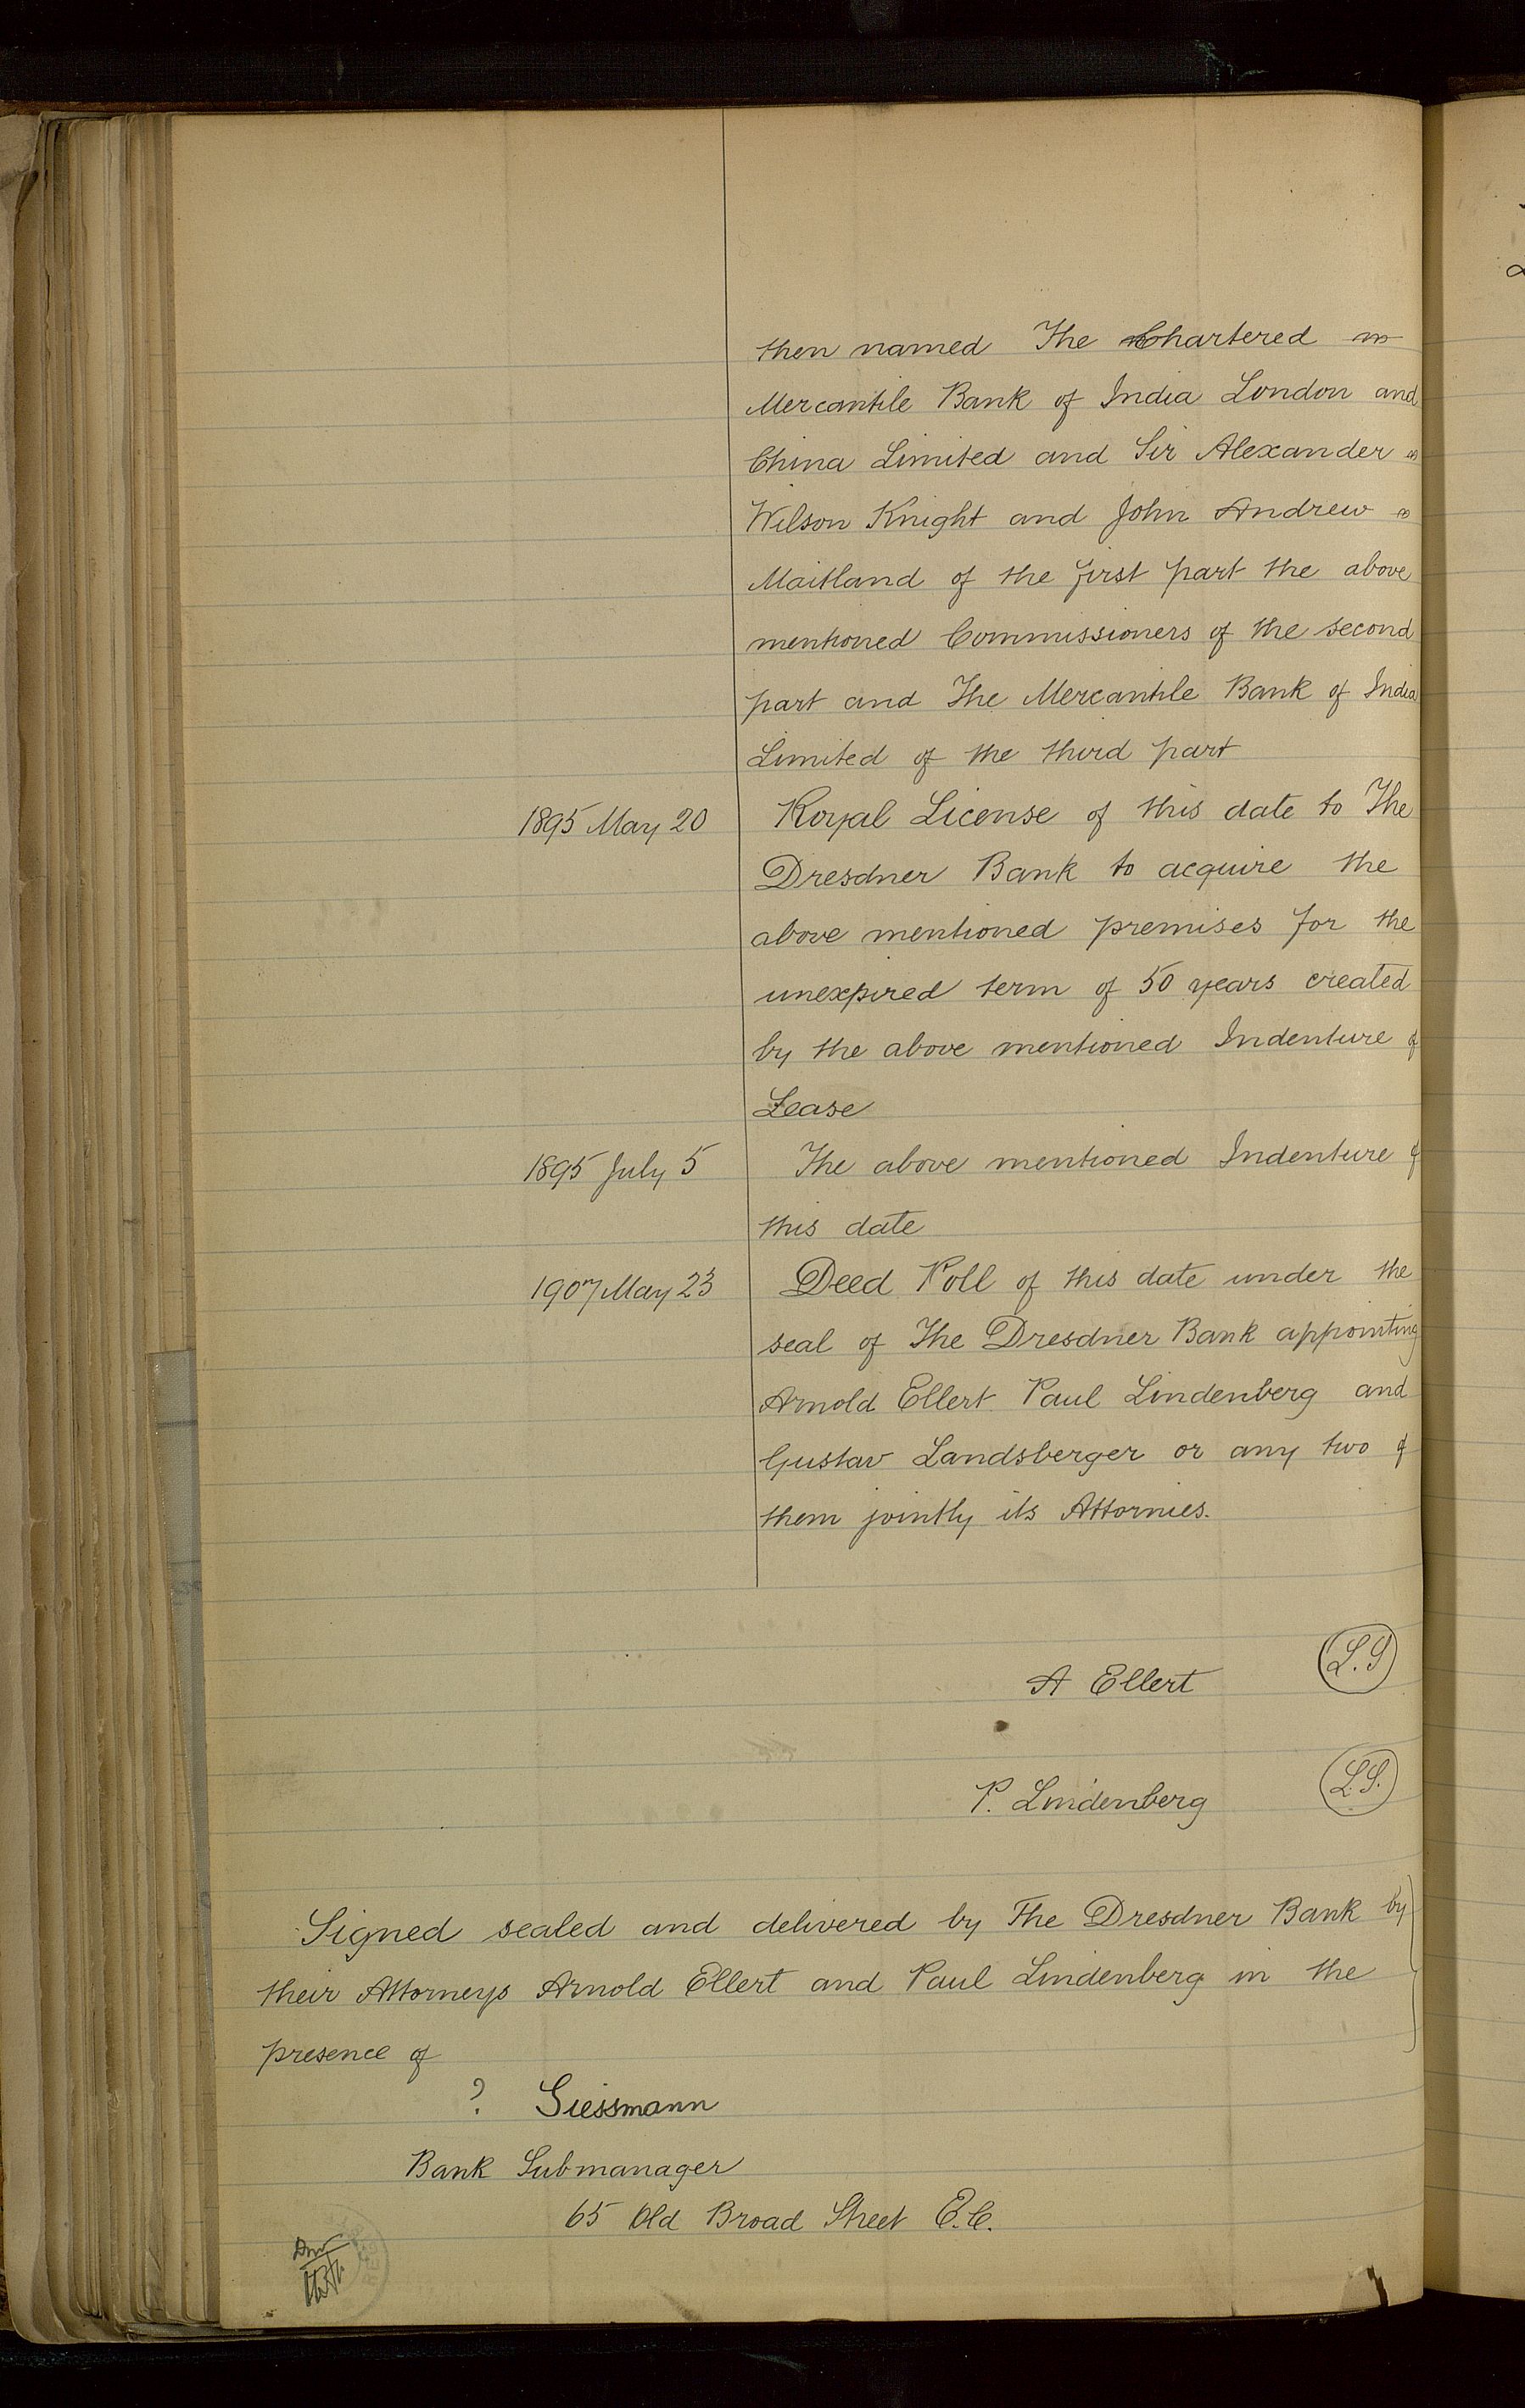 then named The Chartered
Mercantile Bank of India London and
China Limited and Sir Alexander
Wilson Knight and John Andrew
Maitland of the first part the above
mentioned Commissioners of the second
part and The Mercantile Bank of India
Limited of the third part
1895 May 20 Royal License of this date to The
Dresdner Bank to acquire the
above mentioned premises for the
unexpired term of 50 years created
by the above mentioned Indenture of
Lease
1895 July 5 The above mentioned Indenture of
this date
1907 May 23 Deed Poll of this date under the
seal of The Dresdner Bank appointing
Arnold Ellert Paul Lindenberg and
Gustav Landsberger or any two of
them jointly its Attornies.
A Ellert L.S
P. Lindenberg L.S.
Signed sealed and delivered by The Dresdner Bank by
their Attorneys Arnold Ellert and Paul Lindenberg in the
presence of
? Siessmann
Bank Submanager
65 Old Broad Street E.C.